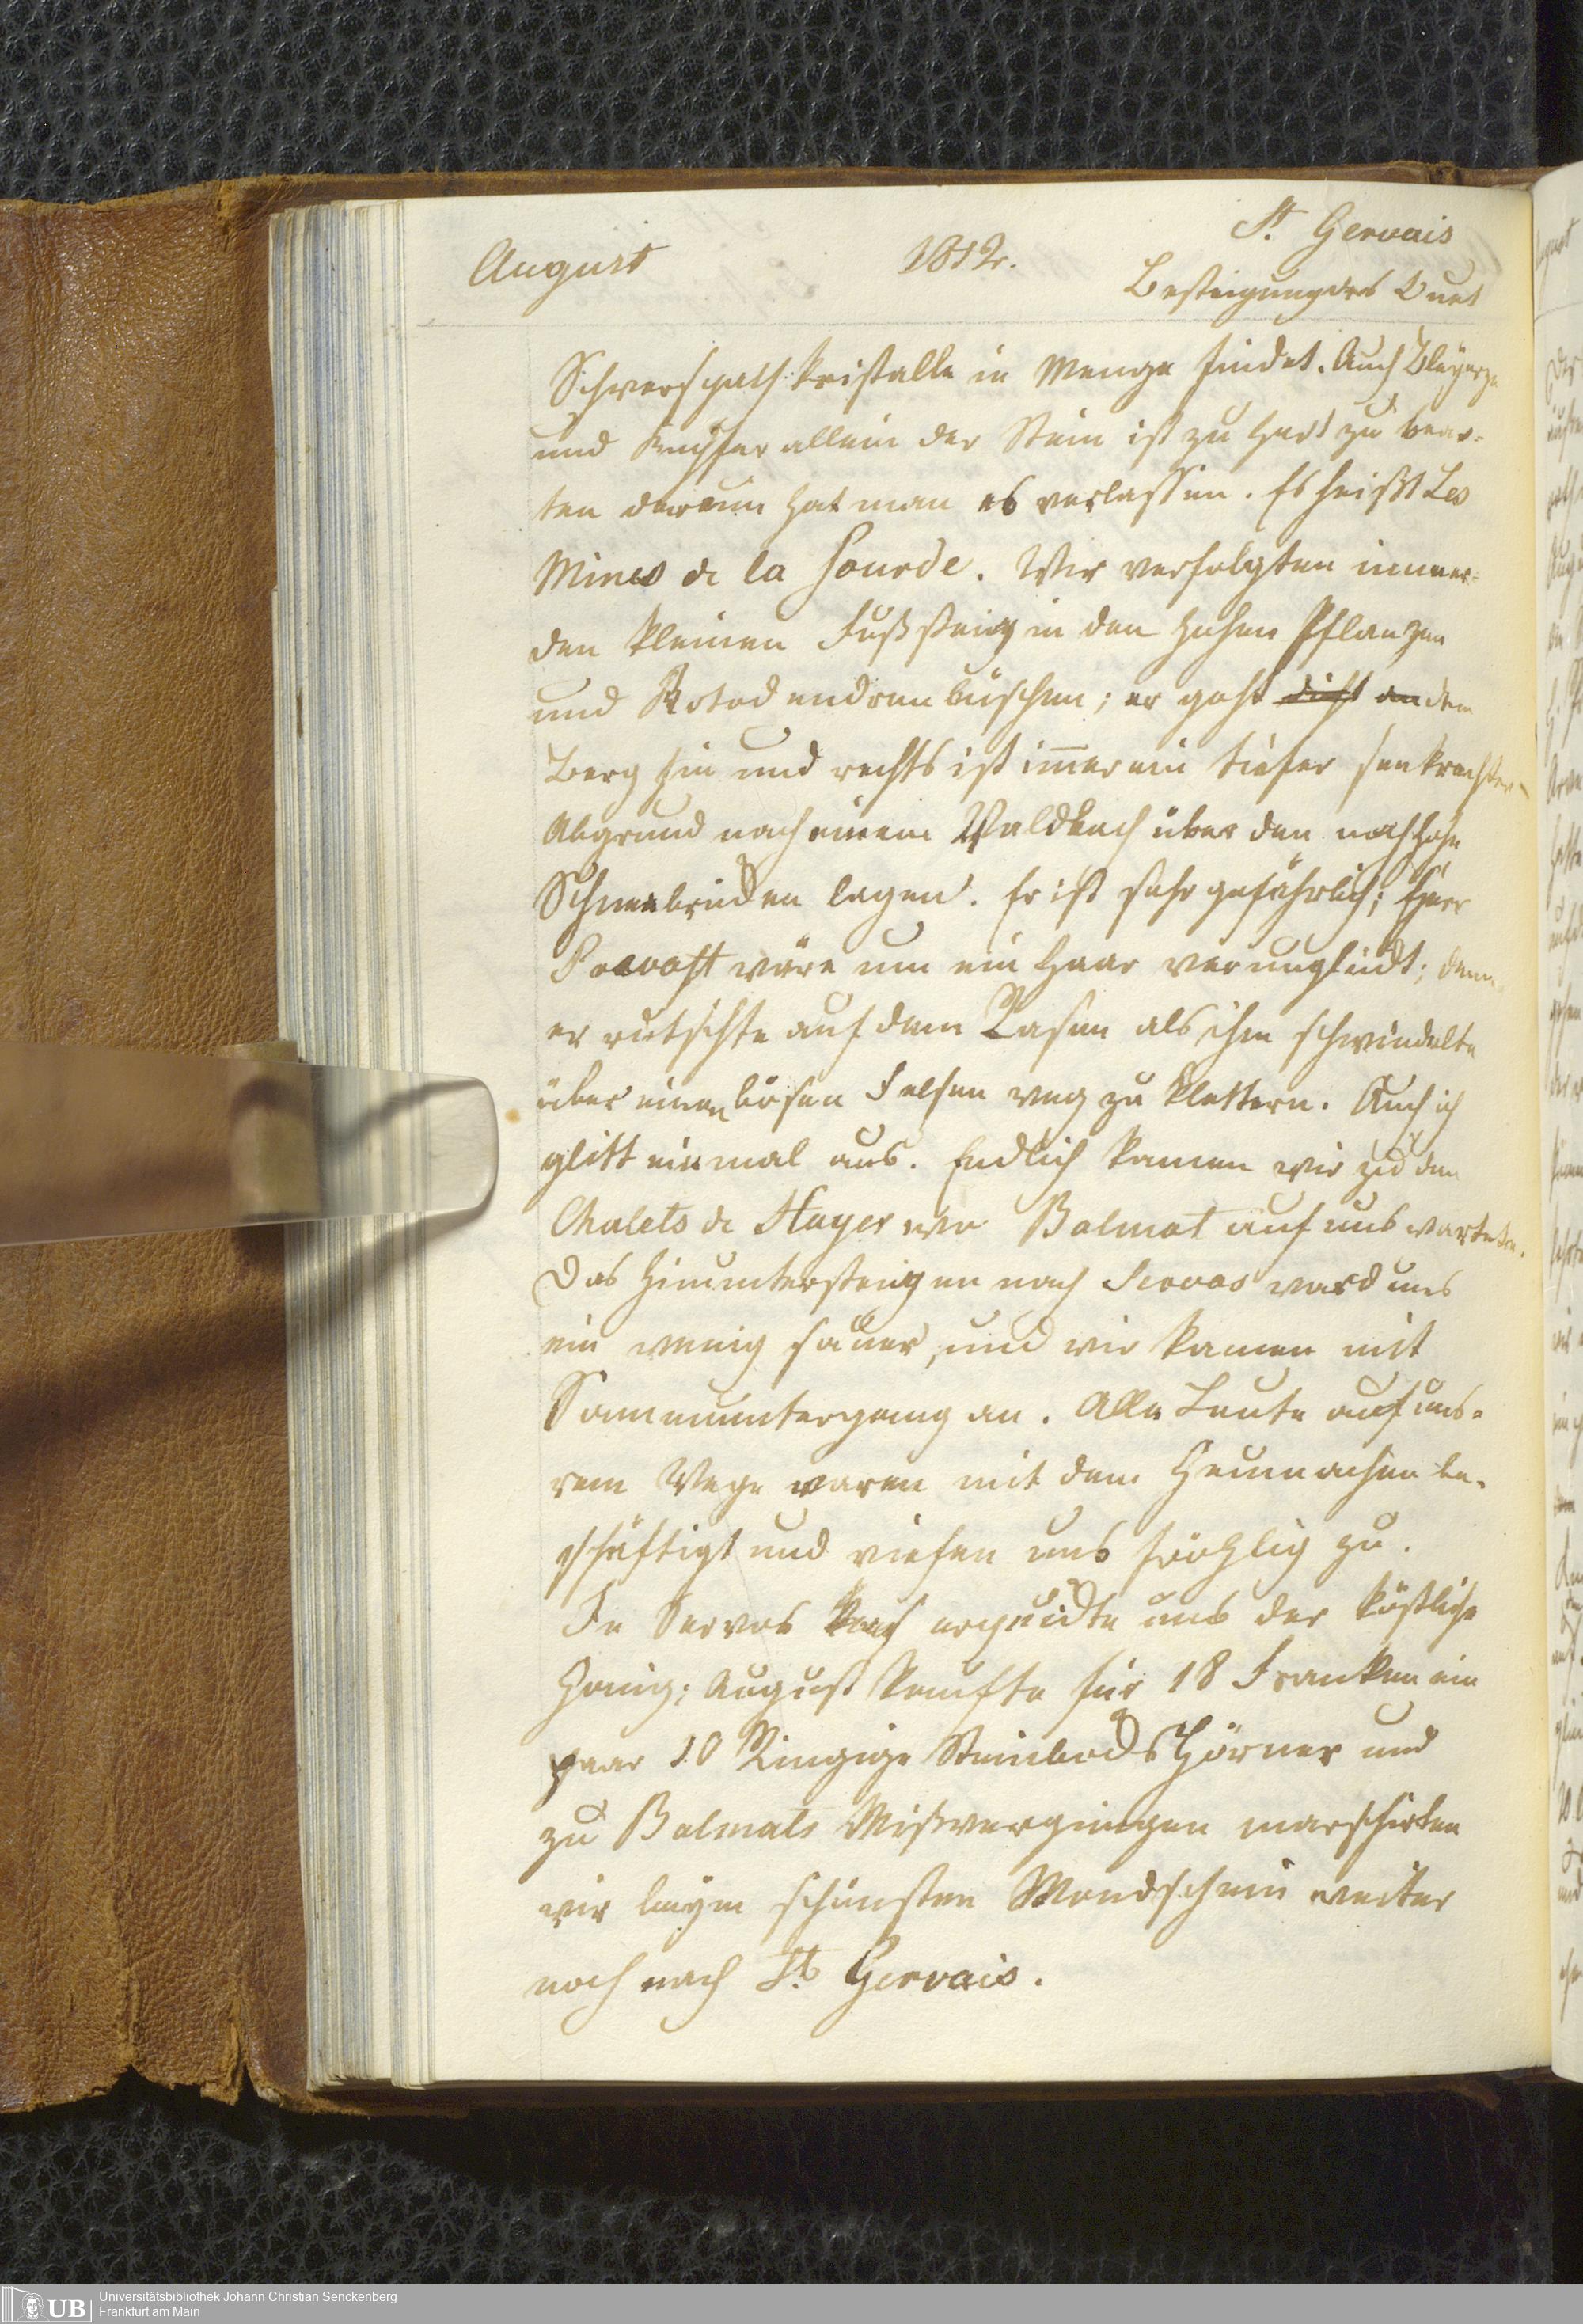 August 1812. St. Gervais
Besteigung des Buet
Schwerspath kristalle in Menge findet. Auch Bleyerze
und Kupfer allein der Stein ist zu hart zu bear-
ten darum hat man es verlassen. Es heißt Les
Mines de la Sourde. Wir verfolgten immer
den kleinen Fußsteig in den hohen Pflanzen
und Rotodendronbüschen; er geht dicht an dem
Berg hin und rechts ist immer ein tiefer senkrechter
Abgrund nach einem Waldbach über den noch hohe
Schneebrücken lagen. Er ist sehr gefährlich; Herr
Prevost wäre um ein Haar verunglückt; denn
er rutschte auf dem Rasen als ihm schwindelte
über einen bösen Felsen weg zu klettern. Auch ich
glitt einmal aus. Endlich kamen wir zu den
Chalets de Hayer wo Balmat auf uns wartete.
Das Hinuntersteigen nach Servos ward uns
ein wenig sauer, und wir kamen mit
Sonnenuntergang an. Alle Leute auf uns-
rem Wege waren mit dem Heumachen be-
schäftigt und riefen uns fröhlig zu.
In Servos erquickte uns der köstliche
Honig; August kaufte für 18 Franken ein
paar 10 Ringige Steinbockshörner und
zu Balmats Mißvergnügen marschirten
wir beym schönsten Mondschein weiter
noch nach St. Gervais.
Universitätsbibliothek Johann Christian Senckenberg
Frankfurt am Main
UB